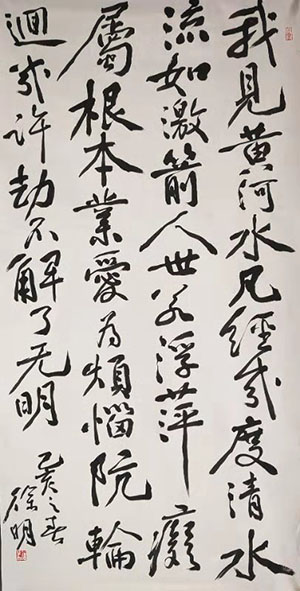 我見黄河水凡經幾度清水
流如激箭人世若浮萍癡
屬根本業愛為煩惱阬輪
迴幾許劫不解了无明
己亥之春
徐明